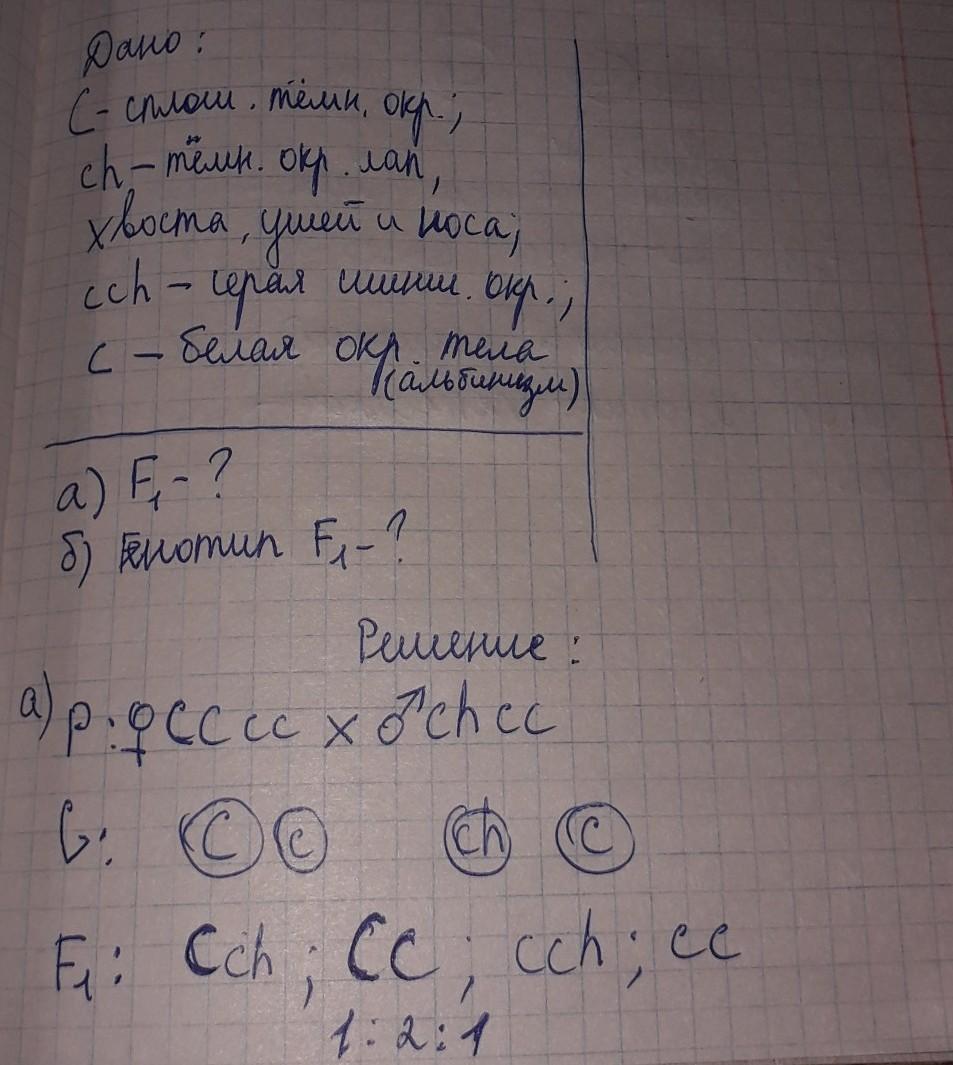 Дано:
C - сплош. тёмн. окр.;
ch - тёмн. окр. лап,
хвоста, ушей и носа;
cch - серая шинш. окр.;
c - белая окр. тела
(альбинизм)
а) F₁ - ?
б) Генотип F₁ - ?
Решение:
а) P: ♀ CC cc x ♂ ch cc
G: C c ch C
F₁: Cch ; Cc ; cch ; cc
1 : 2 : 1